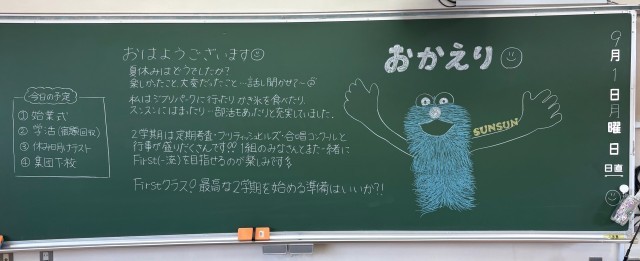 おはようございます
夏休みはどうでしたか?
楽しかったこと、大変だったこと…話し聞かせて〜
私はジブリパークに行ったり、かき氷を食べたり、
スンスンにはまったり…部活もあったりと充実していました。
2学期は定期考査・ブリティッシュヒルズ・合唱コンクールと
行事が盛りだくさんです!! 1組のみなさんとまた一緒に
First(一流)を目指せるのが楽しみです
Firstクラス! 最高な2学期を始める準備はいいか?!
今日の予定
① 始業式
② 学活(宿題回収)
③ 休み明けテスト
④ 集団下校
おかえり
SUNSUN
9月1日月曜日
日直